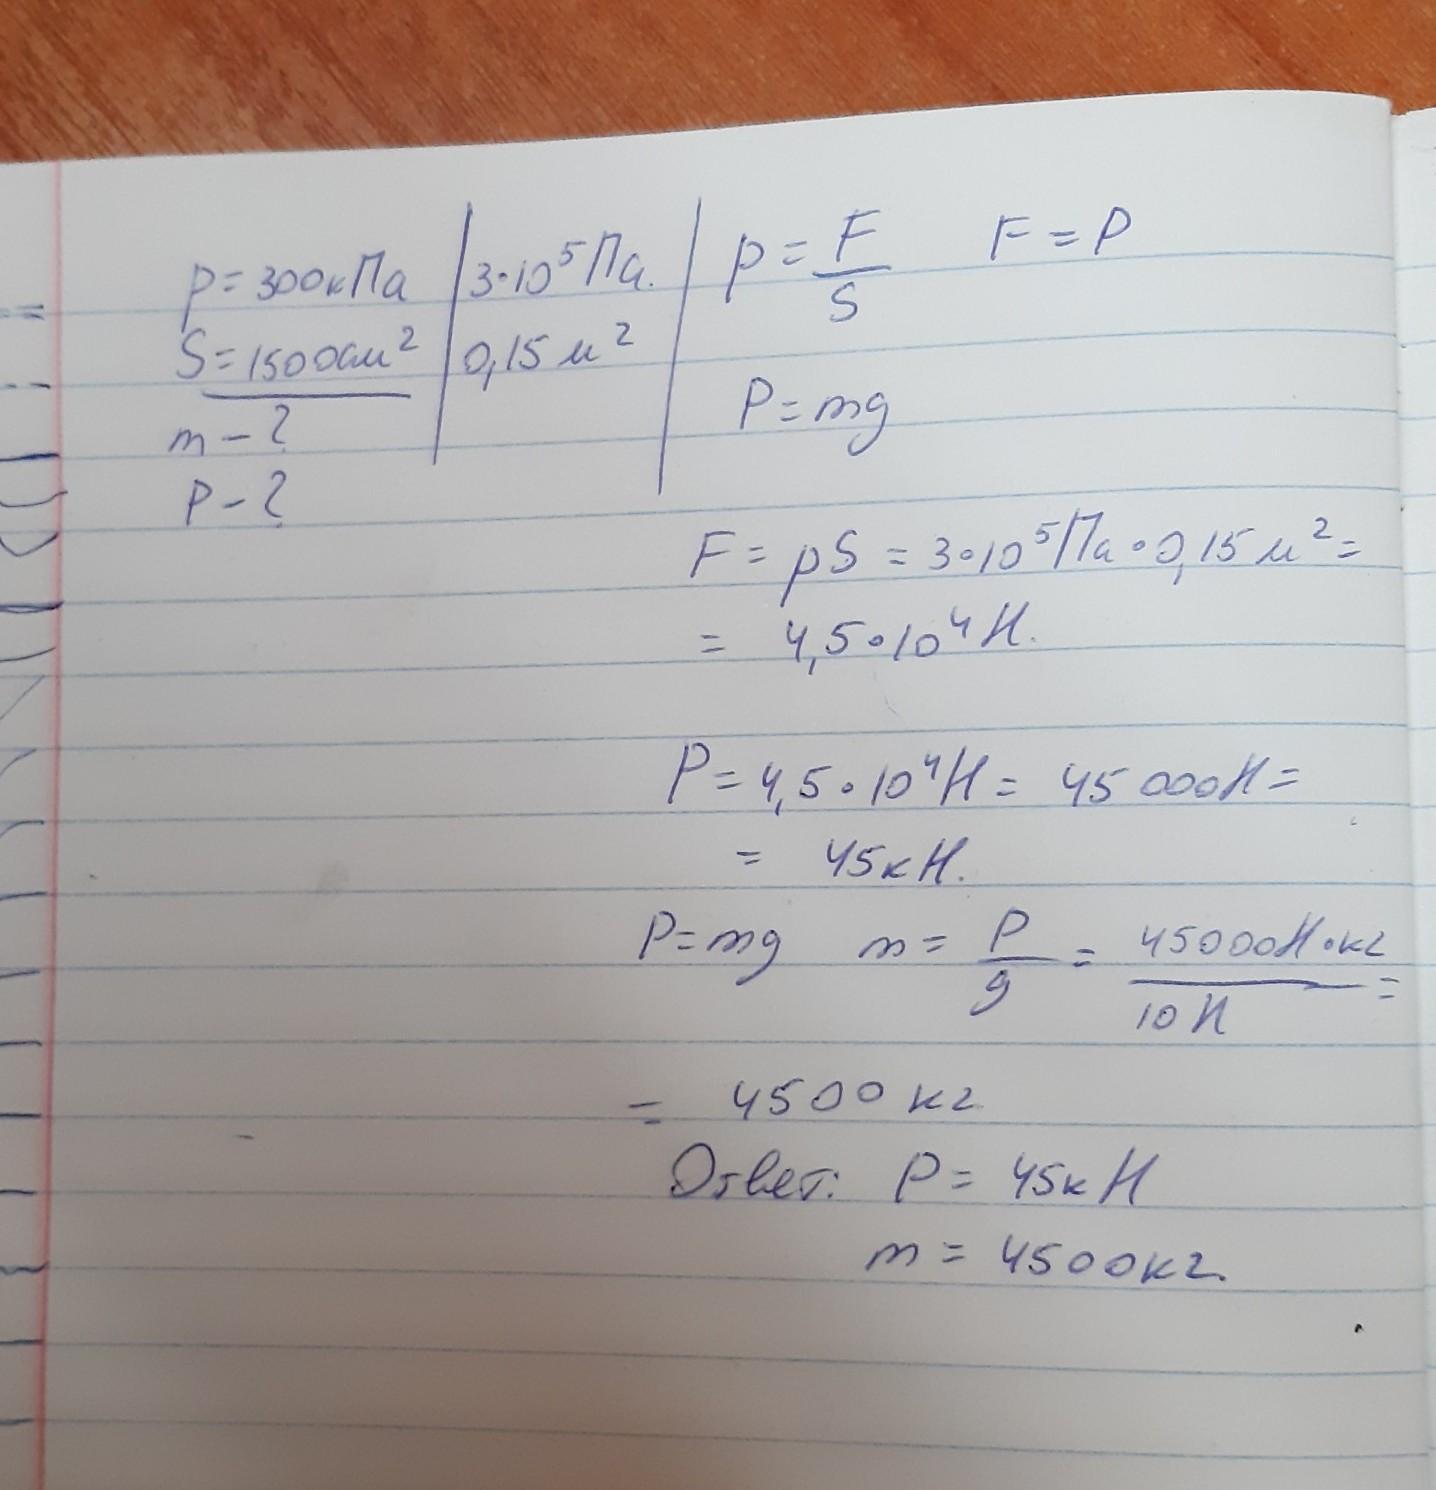 p = 300кПа | 3·10⁵ Па. | p = F/S F = P
S = 1500см² | 0,15 м²
m – ? P = mg
P – ?
F = pS = 3·10⁵ Па · 0,15 м² =
= 4,5·10⁴ Н.
P = 4,5·10⁴ Н = 45 000Н =
= 45кН.
P = mg m = P/g = 45000Н·кг/10Н =
= 4500 кг
Ответ: P = 45кН
m = 4500кг.